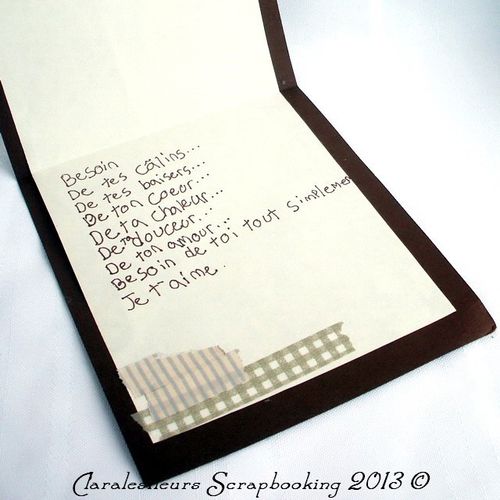 Besoin
De tes câlins...
De tes baisers...
De ton coeur...
De ta chaleur...
De ta douceur...
De ton amour...
Besoin de toi tout simplemen
Je t'aime.
Claralesfleurs Scrapbooking 2013 ©